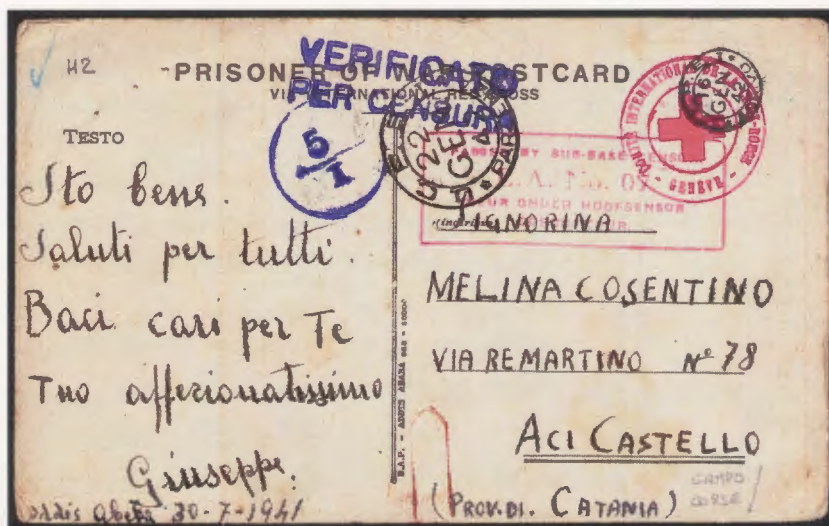 H2
PRISONER OF WAR POSTCARD
VIA INTERNATIONAL RED CROSS
VERIFICATO
PER CENSURA
5/1
22 GEN
PAR
COMITÉ INTERNATIONAL DE LA CROIX-ROUGE
- GENÈVE -
PASSED BY SUB-BASE CENSOR
S.A. No. 07
DEUR ONDER HOOFSENSOR
TESTO
Sto bene.
Saluti per tutti.
Baci cari per Te
Tuo affezionatissimo
Giuseppe.
Addis Abeba 30-7-1941
SIGNORINA
MELINA COSENTINO
VIA REMARTINO N° 78
ACI CASTELLO
(PROV. DI. CATANIA)
CAMPO
CORSE